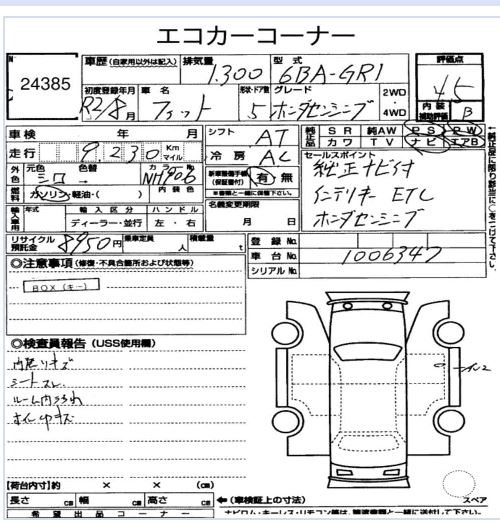 エコカーコーナー
24385
車歴 (自家用以外は記入) 排気量 1.300 型式 6BA-GR1 評価点 4.5
初度登録年月 R2/8月 車名 フィット 形状・ドア数 5 グレード ホンダセンシング 2WD ・ 4WD 内装補助評価 B
車検 年 月 シフト AT 純正品 SR 純AW PS PW
走行 9,230 Km マイル 冷房 AC カワ TV ナビ エアB
外色 元色 シロ 色替 カラーNo. NH908
新車整備手帳(保証書付) 有・無
セールスポイント
純正ナビ付
インテリキー ETC
ホンダセンシング
燃料 ガソリン・軽油・( ) 内装色
輸入車用 年式 輸入区分 ハンドル 名義変更期限
ディーラー・並行 左・右 月 日
リサイクル預託金 8950円 乗車定員 人 積載量 t
登録No.
車台No. 1006347
シリアルNo.
◎注意事項 (修復・不具合箇所および状態等)
BOX(キー)
◎検査員報告 (USS使用欄)
内装キズ
シートスレ
【荷台内寸】約 × × (cm)
長さ cm 幅 cm 高さ cm ←(車検証上の寸法)
スペア
希望出品コーナー